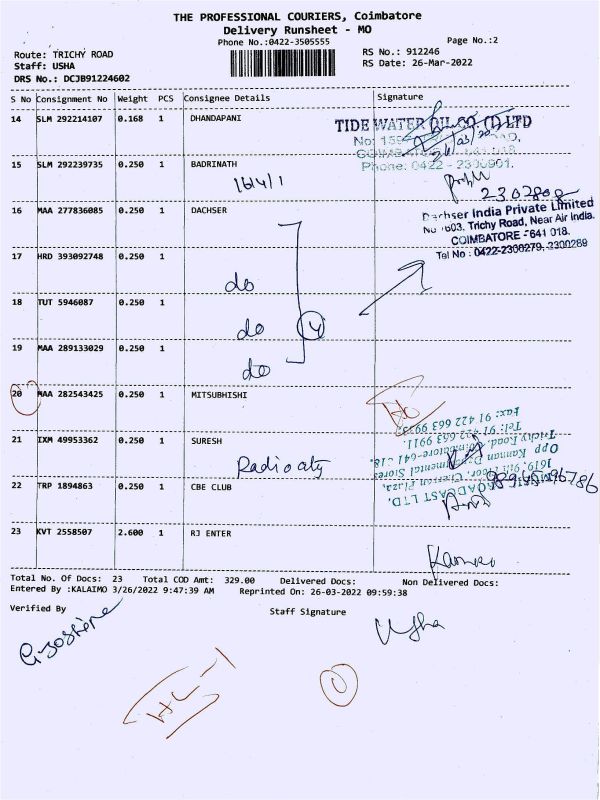 THE PROFESSIONAL COURIERS, Coimbatore
Delivery Runsheet - MO
Phone No.:0422-3505555
Page No.:2
Route: TRICHY ROAD
RS No.: 912246
Staff: USHA
RS Date: 26-Mar-2022
DRS No.: DCJB91224602
S No Consignment No Weight PCS Consignee Details Signature
14 SLM 292214107 0.168 1 DHANDAPANI
TIDE WATER OIL CO. (I) LTD
COIMBATORE 641 018.
Phone: 0422 - 2300901.
15 SLM 292239735 0.250 1 BADRINATH
16/4/1
2302808
16 MAA 277836085 0.250 1 DACHSER
Dachser India Private Limited
No 1603, Trichy Road, Near Air India.
COIMBATORE - 641 018.
Tel No : 0422-2300279, 2300289
17 HRD 393092748 0.250 1
do
18 TUT 5946087 0.250 1
do 4
19 MAA 289133029 0.250 1
do
20 MAA 282543425 0.250 1 MITSUBHISHI
Fax: 91 422 663 9933.
Tel: 91 422 663 9911.
Trichy Road, Coimbatore-641 018.
Opp Kannan Departmental Stores
21 IXM 49953362 0.250 1 SURESH
Radio city
22 TRP 1894863 0.250 1 CBE CLUB
23 KVT 2558507 2.600 1 RJ ENTER
Total No. Of Docs: 23 Total COD Amt: 329.00 Delivered Docs: Non Delivered Docs:
Entered By :KALAIMO 3/26/2022 9:47:39 AM Reprinted On: 26-03-2022 09:59:38
Verified By
Staff Signature
Usha
HC-1
0